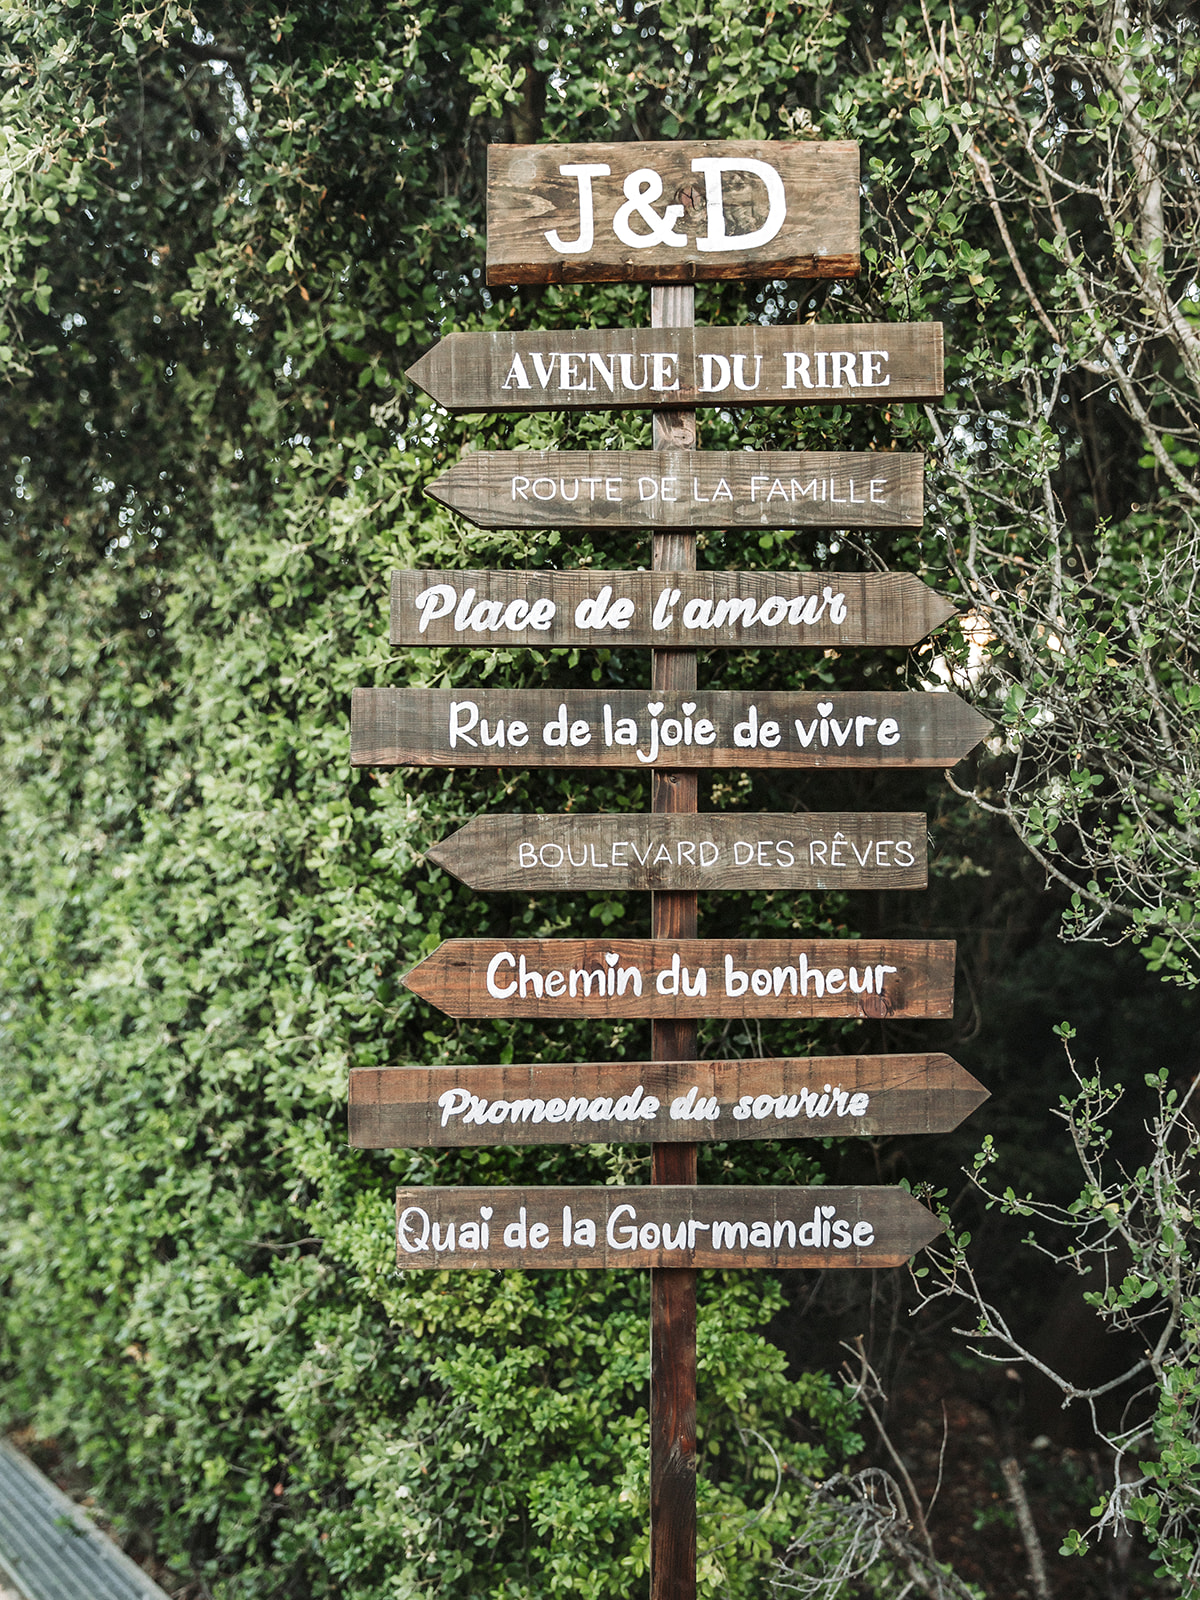 J&D
AVENUE DU RIRE
ROUTE DE LA FAMILLE
Place de l'amour
Rue de la joie de vivre
BOULEVARD DES RÊVES
Chemin du bonheur
Promenade du sourire
Quai de la Gourmandise